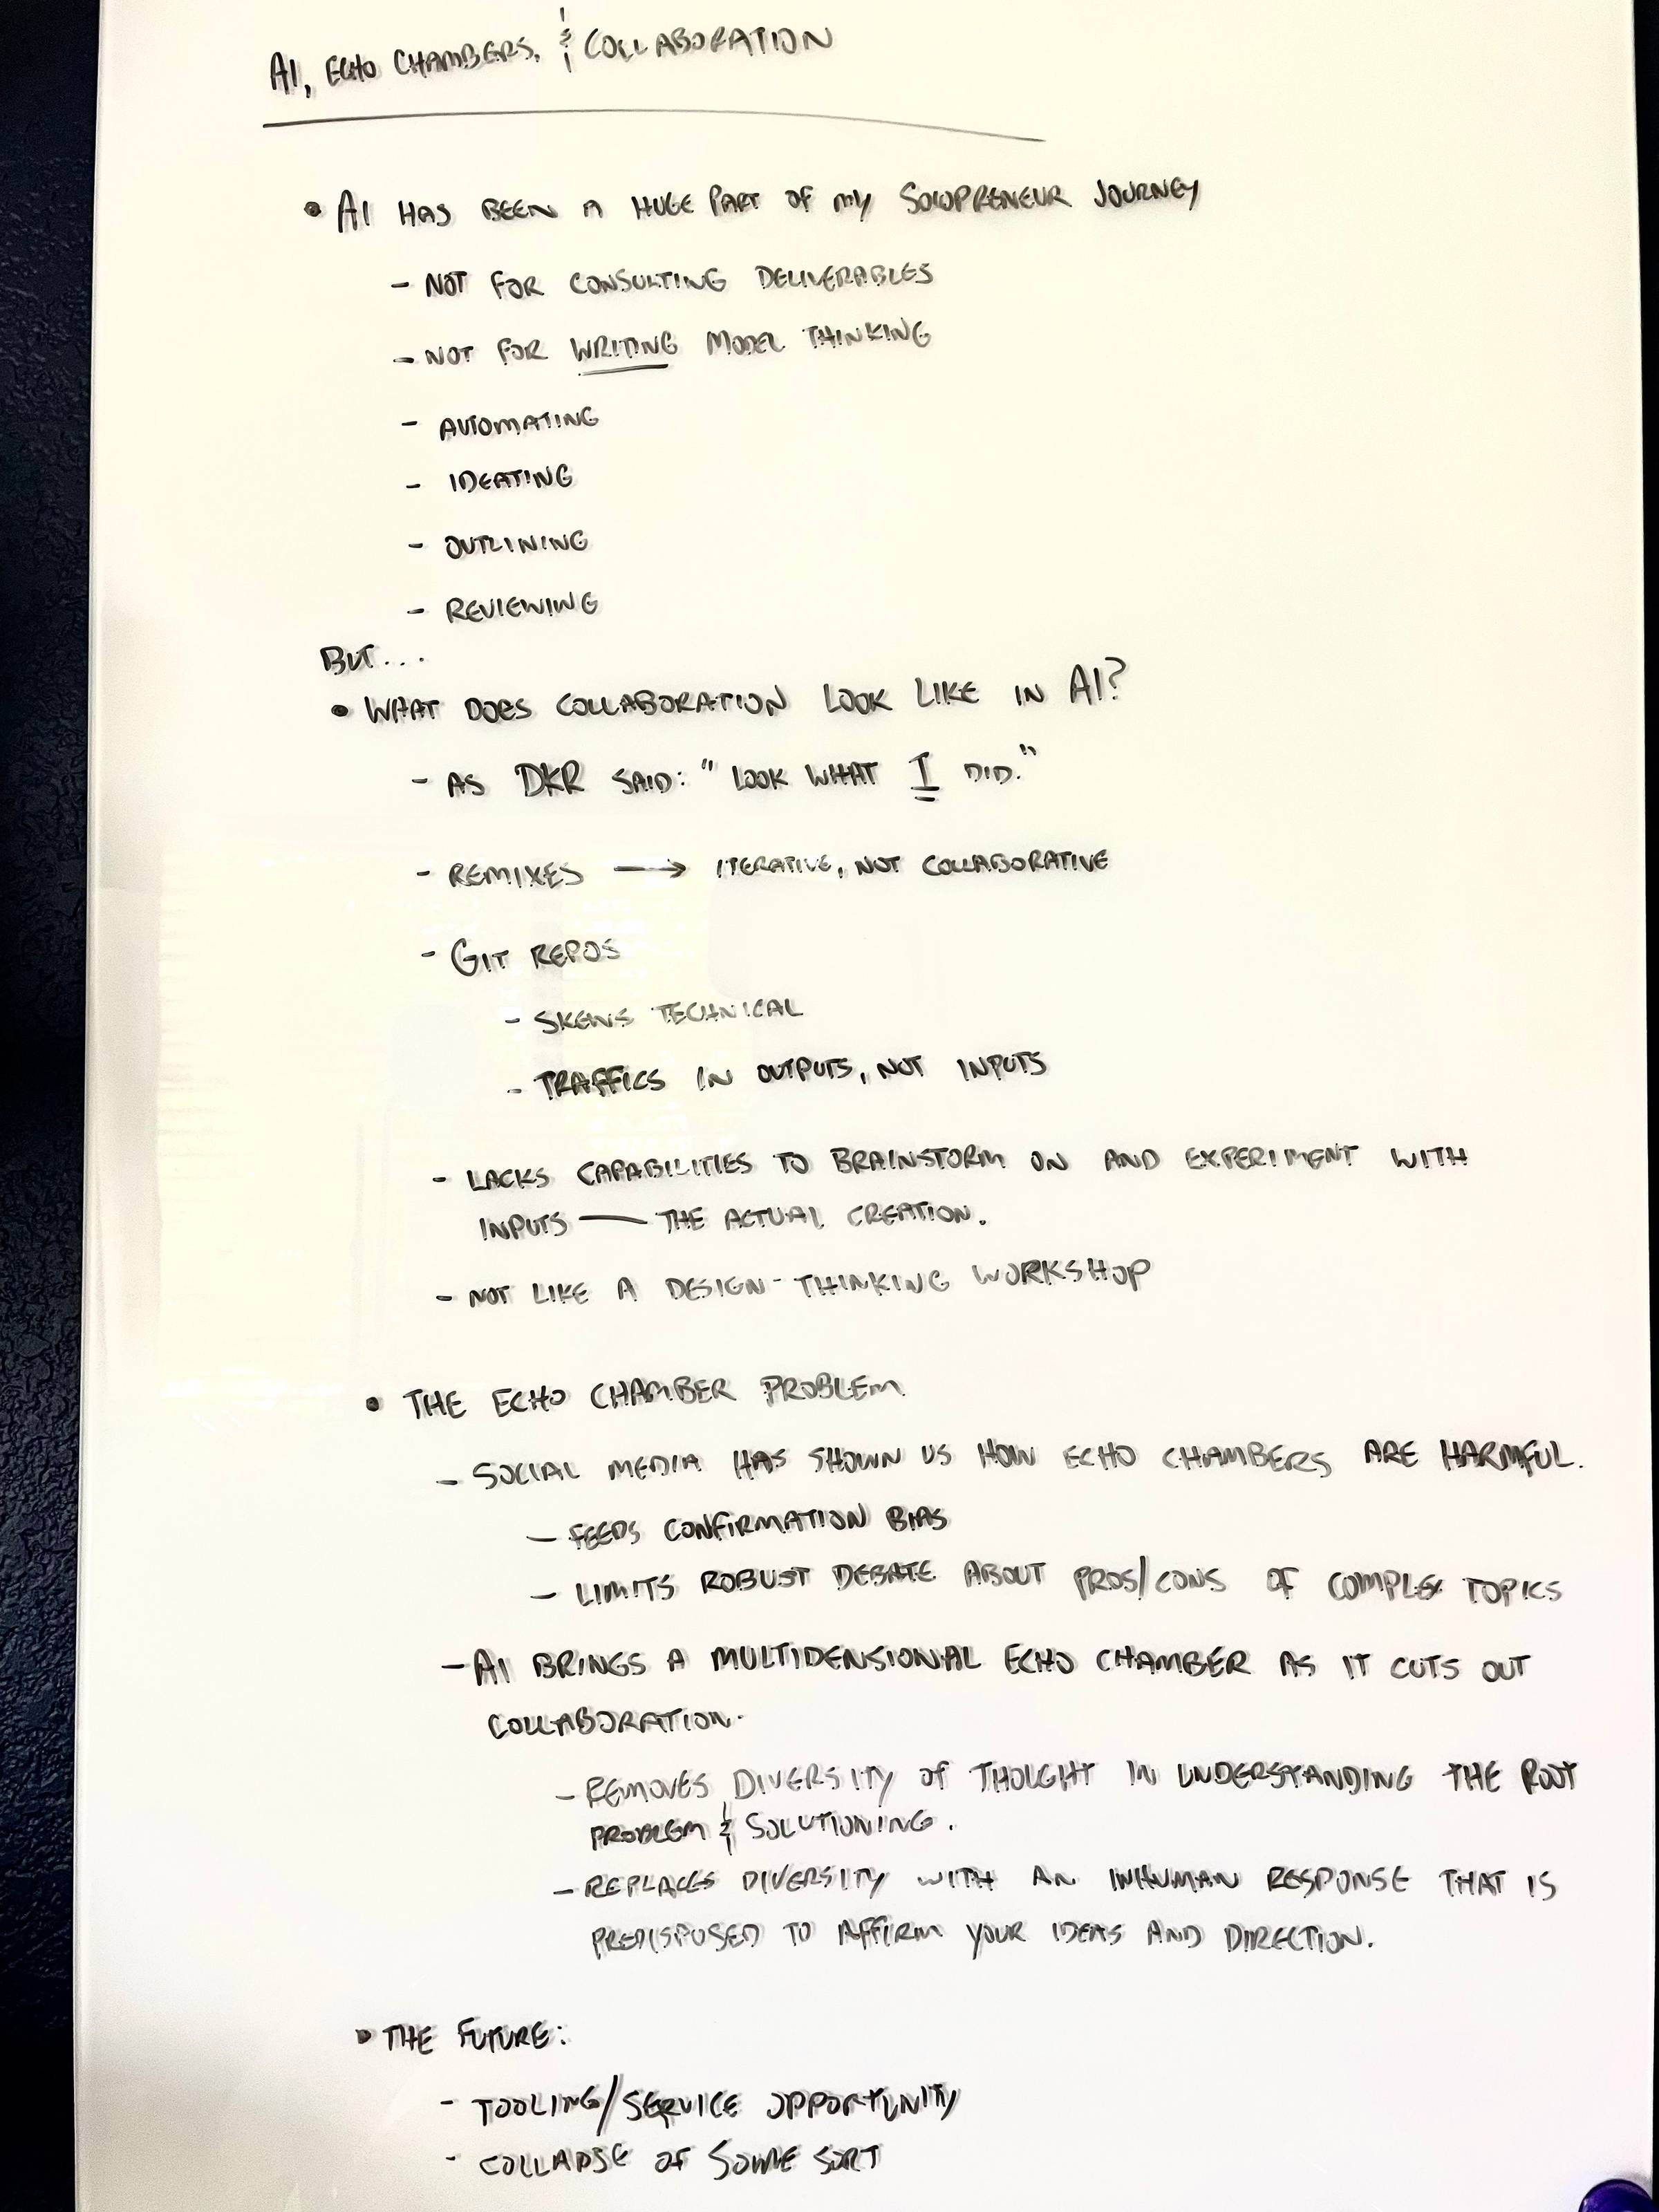 AI, ECHO CHAMBERS, & COLLABORATION
• AI HAS BEEN A HUGE PART OF MY SOLOPRENEUR JOURNEY
- NOT FOR CONSULTING DELIVERABLES
- NOT FOR WRITING MODEL THINKING
- AUTOMATING
- IDEATING
- OUTLINING
- REVIEWING
BUT...
• WHAT DOES COLLABORATION LOOK LIKE IN AI?
- AS DKR SAID: "LOOK WHAT I DID."
- REMIXES → ITERATIVE, NOT COLLABORATIVE
- GIT REPOS
- SKEWS TECHNICAL
- TRAFFICS IN OUTPUTS, NOT INPUTS
- LACKS CAPABILITIES TO BRAINSTORM ON AND EXPERIMENT WITH
INPUTS — THE ACTUAL CREATION.
- NOT LIKE A DESIGN-THINKING WORKSHOP
• THE ECHO CHAMBER PROBLEM
- SOCIAL MEDIA HAS SHOWN US HOW ECHO CHAMBERS ARE HARMFUL.
- FEEDS CONFIRMATION BIAS
- LIMITS ROBUST DEBATE ABOUT PROS/CONS OF COMPLEX TOPICS
- AI BRINGS A MULTIDENSIONAL ECHO CHAMBER AS IT CUTS OUT
COLLABORATION.
- REMOVES DIVERSITY OF THOUGHT IN UNDERSTANDING THE ROOT
PROBLEM & SOLUTIONING.
- REPLACES DIVERSITY WITH AN INHUMAN RESPONSE THAT IS
PREDISPOSED TO AFFIRM YOUR IDEAS AND DIRECTION.
• THE FUTURE:
- TOOLING/SERVICE OPPORTUNITY
- COLLAPSE OF SOME SORT